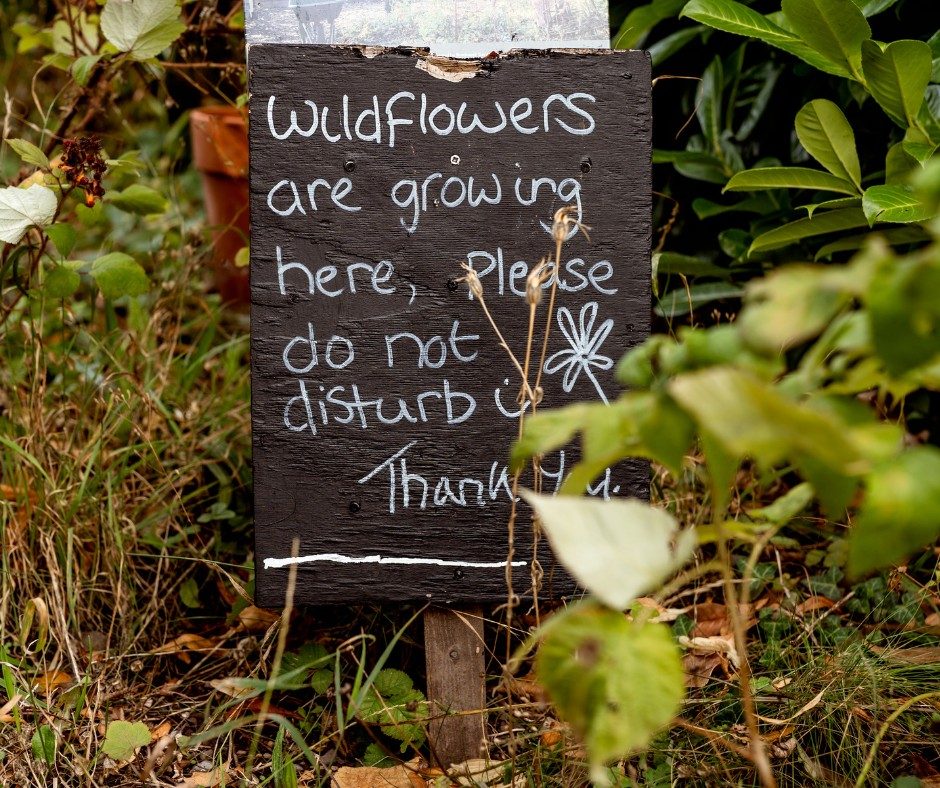 Wildflowers
are growing
here, Please
do not
disturb
Thank